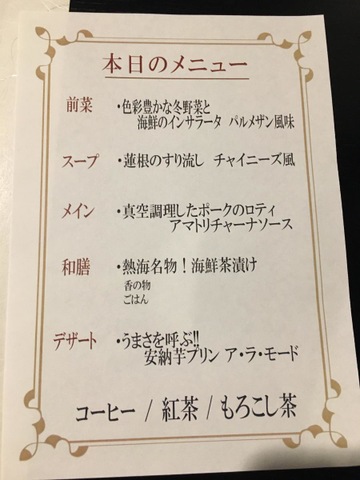 本日のメニュー
前菜 ・色彩豊かな冬野菜と
海鮮のインサラータ パルメザン風味
スープ ・蓮根のすり流し チャイニーズ風
メイン ・真空調理したポークのロティ
アマトリチャーナソース
和膳 ・熱海名物！海鮮茶漬け
香の物
ごはん
デザート ・うまさを呼ぶ!!
安納芋プリン ア・ラ・モード
コーヒー / 紅茶 / もろこし茶